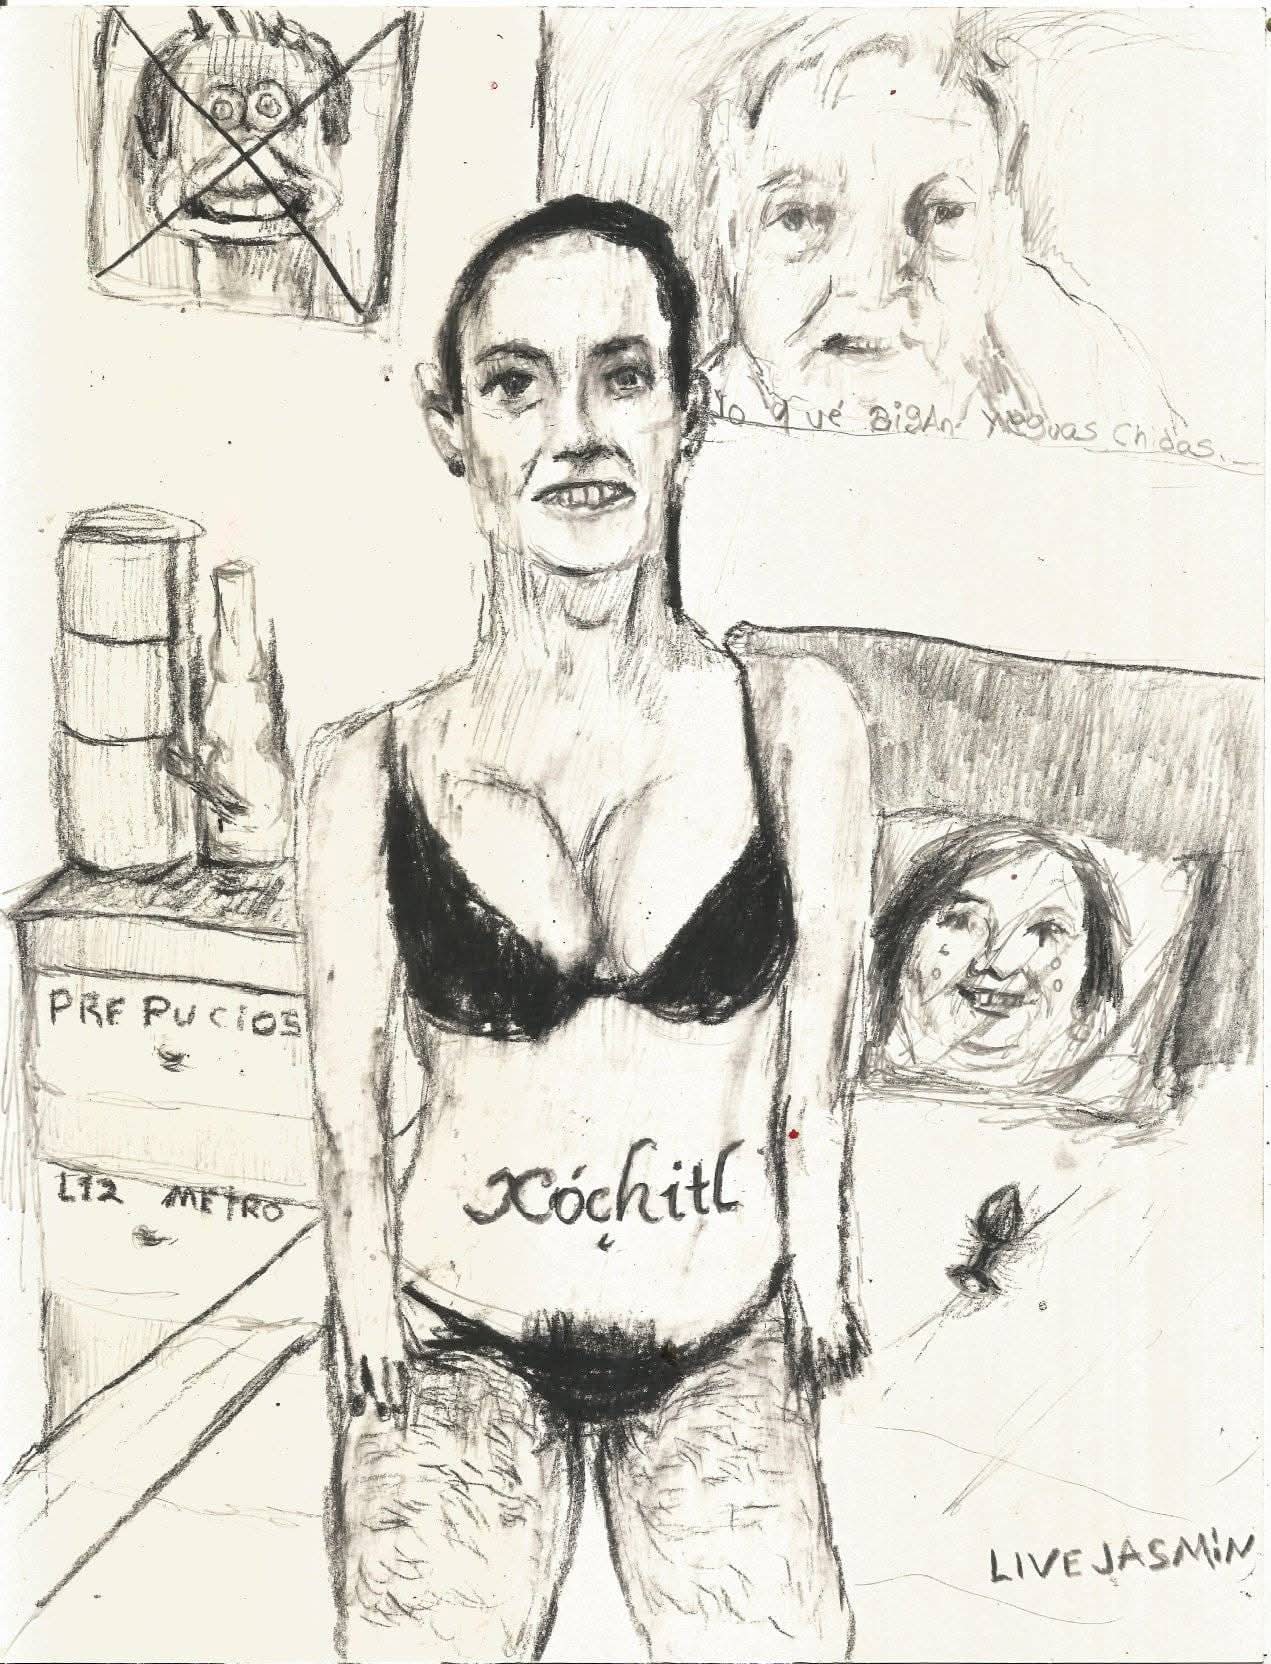 Yo qué Bigan Yeguas chidas.
PREPUCIOS
L12 METRO
Xóchitl
LIVEJASMiN